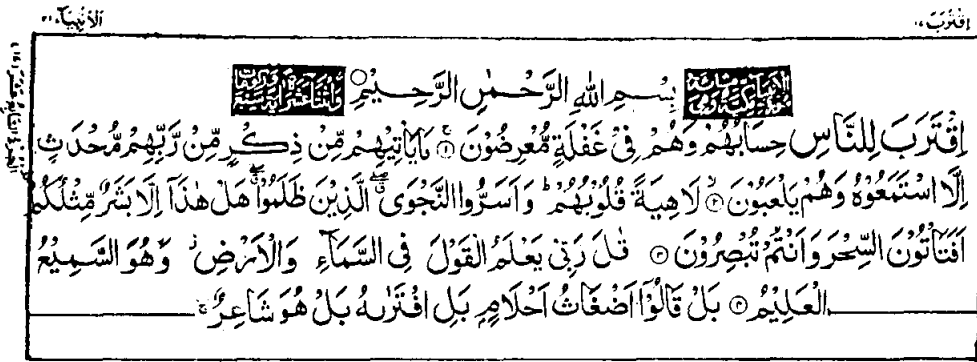 اِقْتَرَبَ ١٧ الْاَنْبِيَآء ٢١
سُوْرَةُ الْاَنْبِيَآءِ مَكِّيَّةٌ وَّهِيَ مِائَةٌ بِسْمِ اللّٰهِ الرَّحْمٰنِ الرَّحِيْمِ وَّاثْنَتَا عَشْرَةَ اٰيَةً وَّسَبْعُ
اِقْتَرَبَ لِلنَّاسِ حِسَابُهُمْ وَهُمْ فِيْ غَفْلَةٍ مُّعْرِضُوْنَ ۚ ﴿١﴾ مَا يَاْتِيْهِمْ مِّنْ ذِكْرٍ مِّنْ رَّبِّهِمْ مُّحْدَثٍ
اِلَّا اسْتَمَعُوْهُ وَهُمْ يَلْعَبُوْنَ ۙ ﴿٢﴾ لَاهِيَةً قُلُوْبُهُمْ ؕ وَاَسَرُّوا النَّجْوَى ۖ الَّذِيْنَ ظَلَمُوْا ۖ هَلْ هٰذَاۤ اِلَّا بَشَرٌ مِّثْلُكُمْ
اَفَتَاْتُوْنَ السِّحْرَ وَاَنْتُمْ تُبْصِرُوْنَ ﴿٣﴾ قٰلَ رَبِّيْ يَعْلَمُ الْقَوْلَ فِي السَّمَآءِ وَالْاَرْضِ ؗ وَهُوَ السَّمِيْعُ
الْعَلِيْمُ ﴿٤﴾ بَلْ قَالُوْۤا اَضْغَاثُ اَحْلَامٍۭ بَلِ افْتَرٰىهُ بَلْ هُوَ شَاعِرٌ ۖۚ